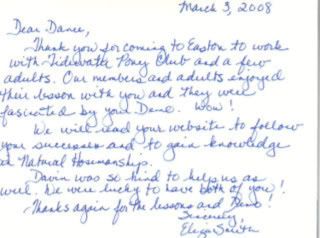 March 3, 2008
Dear Dance,
Thank you for coming to Easton to work
with Tidewater Pony Club and a few
adults. Our members and adults enjoyed
their lesson with you and they were
fascinated by your Demo. Wow!
We will read your website to follow
your successes and to gain knowledge
in Natural Horsemanship.
Davin was so kind to help us as
well. We were lucky to have both of you!
Thanks again for the lessons and Demo!
Sincerely,
Smith